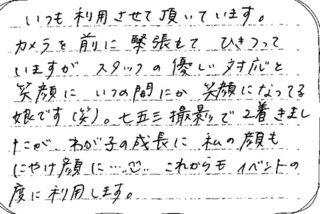 いつも利用させて頂いています。
カメラを前に緊張もて ひきつって
いますが スタッフの優しい対応と
笑顔に いつの間にか 笑顔になってる
娘です(笑)。七五三撮影で2着きまし
たが、わが子の成長に 私の顔も
にやけ顔に…。これからも イベントの
度に利用します。